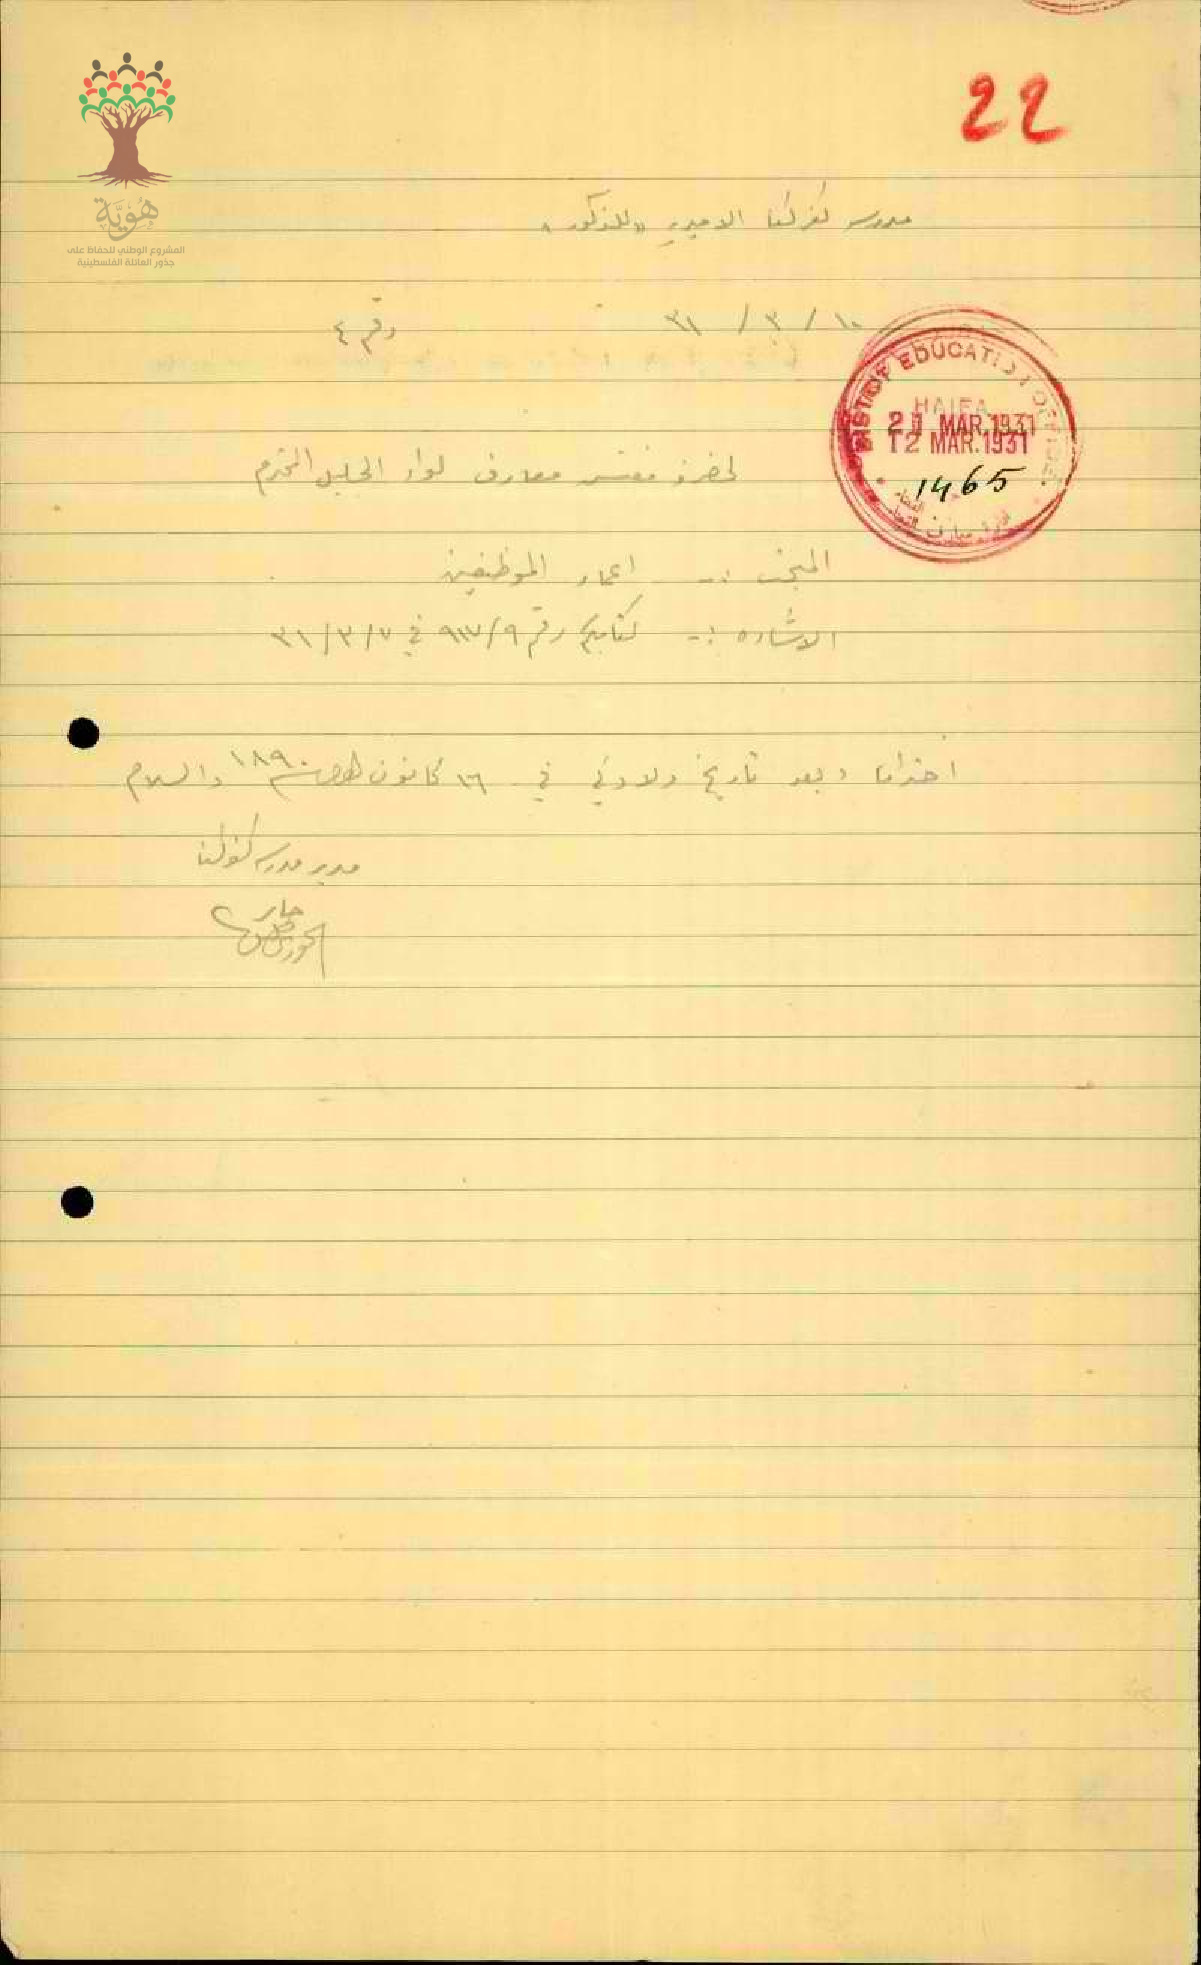 22
هُوِيَّة
المشروع الوطني للحفاظ على
جذور العائلة الفلسطينية
مدرسة كفركنا الاميرية «للذكور»
١٠ / ٣ / ٣١
رقم ٤
DIST OF EDUCATION OFFICE
HAIFA
MAR.1931
12 MAR.1931
1465
لحضرة مفتش معارف لواء الجليل المحترم
المبحث :- اعمار الموظفين
الاشاره :- كتابكم رقم ٩/٩١٧ في ٣١/٣/٧
احتراما وبعد تاريخ ولادتي في ١٦ كانون ١٨٩٠ والسلام
مدير مدرسة كفركنا
الخوري